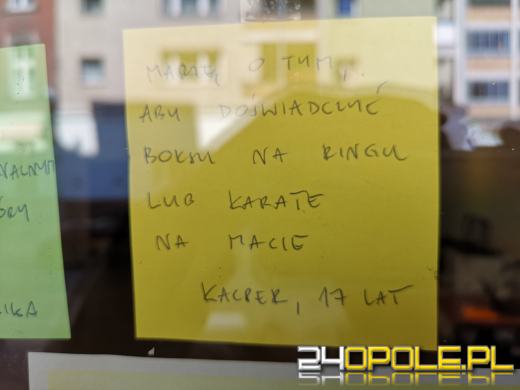 MARZĘ O TYM,
ABY DOŚWIADCZYĆ
BOKSU NA RINGU
LUB KARATE
NA MACIE
KACPER, 17 LAT
24OPOLE.PL